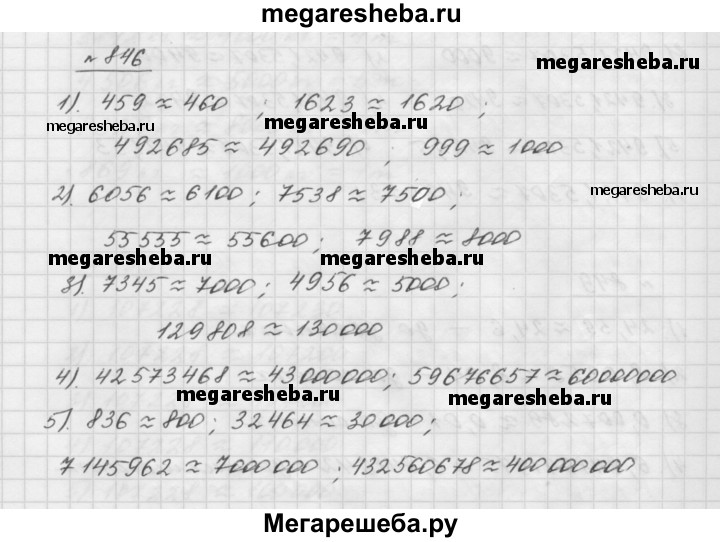 megaresheba.ru
№ 846
megaresheba.ru
1). 459 ≈ 460 ; 1623 ≈ 1620 ;
megaresheba.ru megaresheba.ru
492685 ≈ 492690 ; 999 ≈ 1000
2). 6056 ≈ 6100 ; 7538 ≈ 7500 ;
megaresheba.ru
55555 ≈ 55600 ; 7988 ≈ 8000
megaresheba.ru megaresheba.ru
3). 7345 ≈ 7000 ; 4956 ≈ 5000 ;
129808 ≈ 130000
4). 42573468 ≈ 43000000 ; 59676657 ≈ 60000000
megaresheba.ru megaresheba.ru
5). 836 ≈ 800 ; 32464 ≈ 30000 ;
7145962 ≈ 7000000 ; 432560678 ≈ 400000000
Мегарешеба.ру